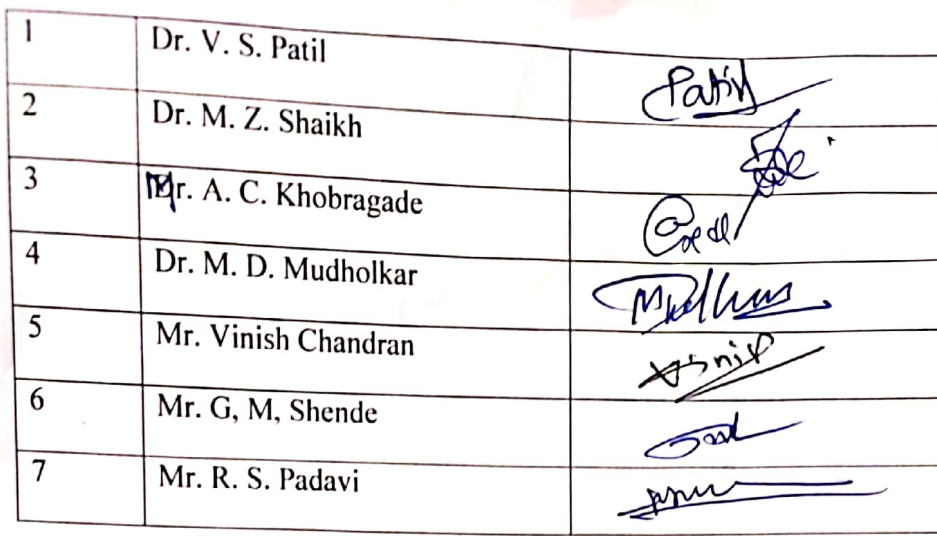 1 Dr. V. S. Patil Patil
2 Dr. M. Z. Shaikh
3 Mr. A. C. Khobragade
4 Dr. M. D. Mudholkar
5 Mr. Vinish Chandran
6 Mr. G, M, Shende
7 Mr. R. S. Padavi